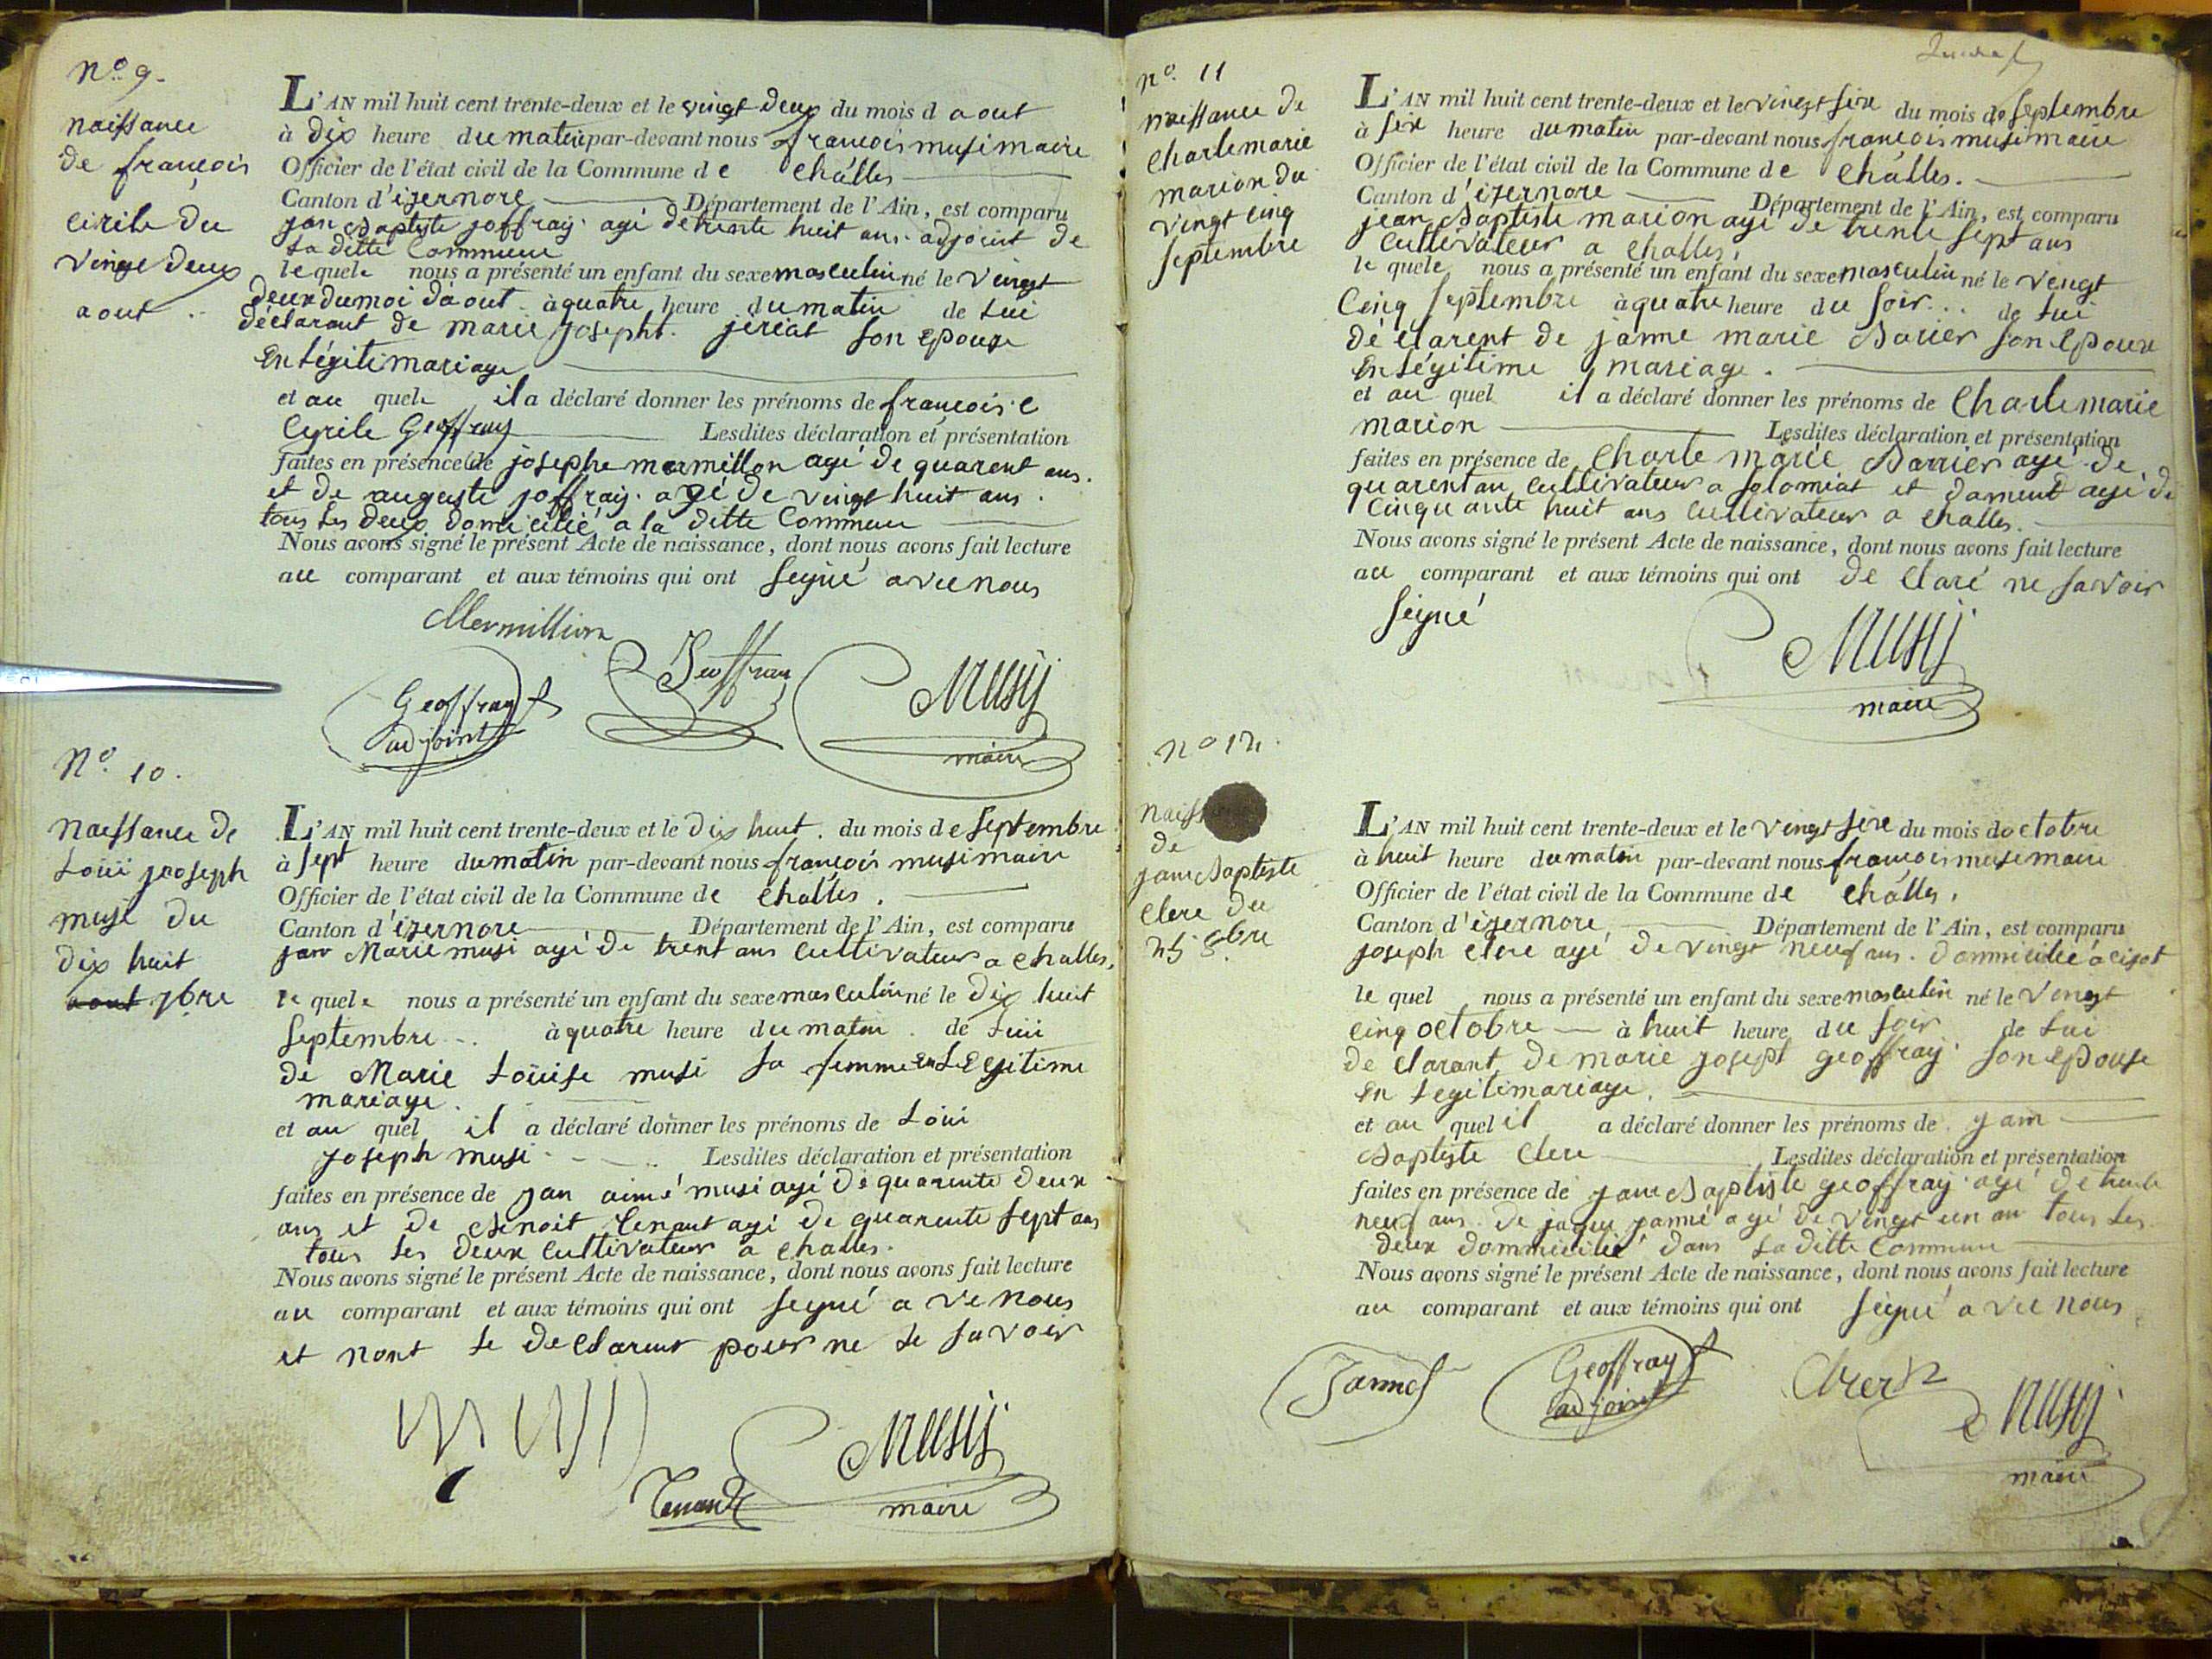 N.o 9.
naissance
de francois
cirile du
vingt deux
aout
L'AN mil huit cent trente-deux et le vingt deux du mois d aout
à dix heure du matin par-devant nous francois musi maire
Officier de l'état civil de la Commune de challes
Canton d'izernore Département de l'Ain, est comparu
jan Baptiste joffray agé de trente huit ans adjoint de
la ditte Commune
le quele nous a présenté un enfant du sexe masculin né le vingt
deux du moi daout à quatre heure du matin de lui
déclarant de marie josepht jeriat son epouse
en légiti mariage
et au quele il a déclaré donner les prénoms de francois c
Cyrile Geoffray Lesdites déclaration et présentation
faites en présence de josephe mermillon agé de quarent ans.
et de auguste joffray agé de vingt huit ans.
tous les deux domicilié a la ditte Commune
Nous avons signé le présent Acte de naissance, dont nous avons fait lecture
au comparant et aux témoins qui ont segné avec nous
Mermillion
Geoffray
adjoint
Geoffray
Musy
maire
N.o 10.
naissance de
Loüi jooseph
musi du
dix huit
aout 7bre
L'AN mil huit cent trente-deux et le dix huit. du mois de septembre
à sept heure du matin par-devant nous francois musi maire
Officier de l'état civil de la Commune de challes.
Canton d'izernore Département de l'Ain, est comparu
jan Marie musi agé de trent ans cultivateur a challes,
le quele nous a présenté un enfant du sexe masculin né le dix huit
septembre à quatre heure du matin de lui
de Marie Loüise musi sa femme en Legitime
mariage.
et au quel il a déclaré donner les prénoms de Loüi
joseph musi Lesdites déclaration et présentation
faites en présence de jan aimé musi agé de quarente deux
ans et de Benoit tenant agé de quarente sept ans
tous les deux cultivateur a challes.
Nous avons signé le présent Acte de naissance, dont nous avons fait lecture
au comparant et aux témoins qui ont segné a ve nous
et nont le declarent pour ne le savoir
Tenand
Musy
maire
n.o 11
naissance de
Charle marie
marion du
vingt cinq
septembre
L'AN mil huit cent trente-deux et le vingt sixe du mois de septembre
à six heure du matin par-devant nous francois musi maire
Officier de l'état civil de la Commune de challes.
Canton d'izernore Département de l'Ain, est comparu
jean Baptiste marion agé de trente sept ans
cultivateur a challes,
le quele nous a présenté un enfant du sexe masculin né le vengt
cinq septembre à quatre heure du soir... de lui
dé clarent de janne marie Barier son epouse
en légitime mariage.
et au quel il a déclaré donner les prénoms de Charle marie
marion Lesdites déclaration et présentation
faites en présence de Charle marie Barrier agé de
quarent an cultivateur a solomiat et dament agé de
cinquante huit ans cultivateur a challes.
Nous avons signé le présent Acte de naissance, dont nous avons fait lecture
au comparant et aux témoins qui ont de claré ne savoir
segné
Musy
maire
n.o 12.
naiss
de
jane Baptiste
clere du
25 8bre
L'AN mil huit cent trente-deux et le vingt sixe du mois doctobre
à huit heure du matin par-devant nous francois musi maire
Officier de l'état civil de la Commune de challes,
Canton d'izernore Département de l'Ain, est comparu
joseph clere agé de vingt neuf ans. dommicilié a cizot
le quel nous a présenté un enfant du sexe masculin né le vingt
cinq octobre à huit heure du soir de lui
de clarant de marie josept geoffray son epouse
en legiti mariage.
et au quel il a déclaré donner les prénoms de jam
Baptiste clere Lesdites déclaration et présentation
faites en présence de jane Baptiste geoffray agé de trente
neuf ans. de jaque janné agé de vingt un an tous les
deux dommicilié dans la ditte Commune
Nous avons signé le présent Acte de naissance, dont nous avons fait lecture
au comparant et aux témoins qui ont segné avec nous
Geoffray
adjoint
Clerc
Musy
maire